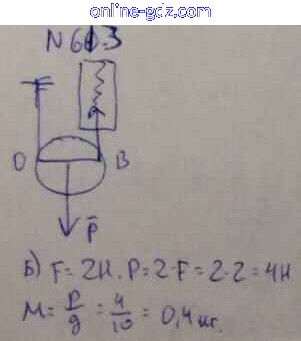 online-gdz.com
N 60.3
O B
P̄
Б) F = 2Н. P = 2·F = 2·2 = 4Н
M = P/g = 4/10 = 0,4 кг.